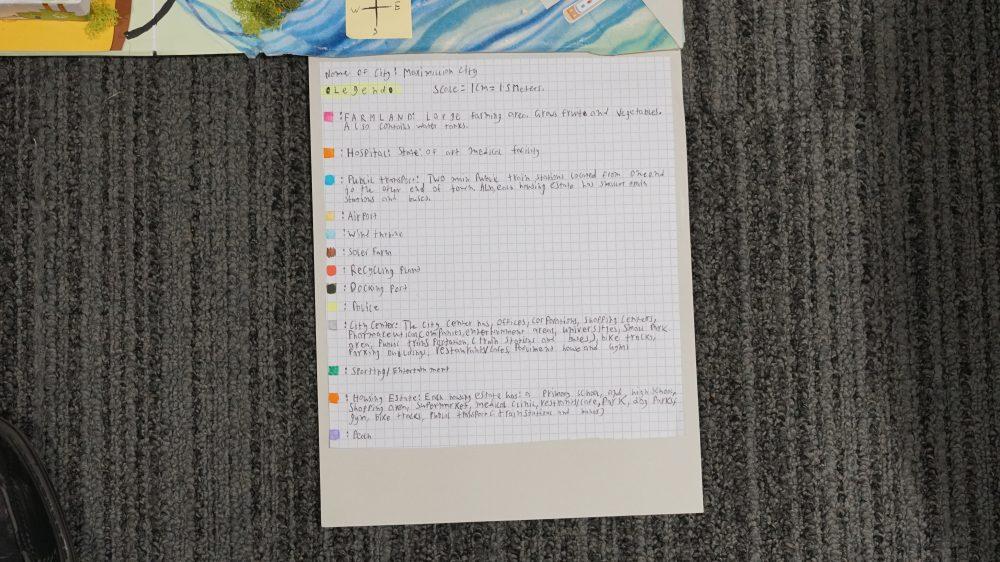 W E
S
Name of City: Maximillion City
Legend Scale = 1cm = 15 Meters.
: FARMLAND: Large farming area. Grows fruits and vegetables.
Also contains water tanks.
: Hospital: State of art medical facility
: Public transport: Two main Public train stations located from one end
to the other end of town. Also, each housing estate has smaller train
stations and buses.
: Airport
: Wind
: Solar Farm
: Recycling Plant
: Docking Port
: Police
: City Center: The City Center has, offices, corporations, shopping centers,
Pharmaceutical companies, entertainment areas, universities, Small Park
area, Public transportation, (train stations and buses), bike tracks,
Parking buildings, restaurants/cafes, house and
: Sporting/Entertainment
: Housing Estate: Each housing estate has: a Primary school, and, high school,
Shopping area, supermarket, medical clinic, restraunt/cafe, Park, dog Park,
gym, bike tracks, Public transport (train stations and buses)
: